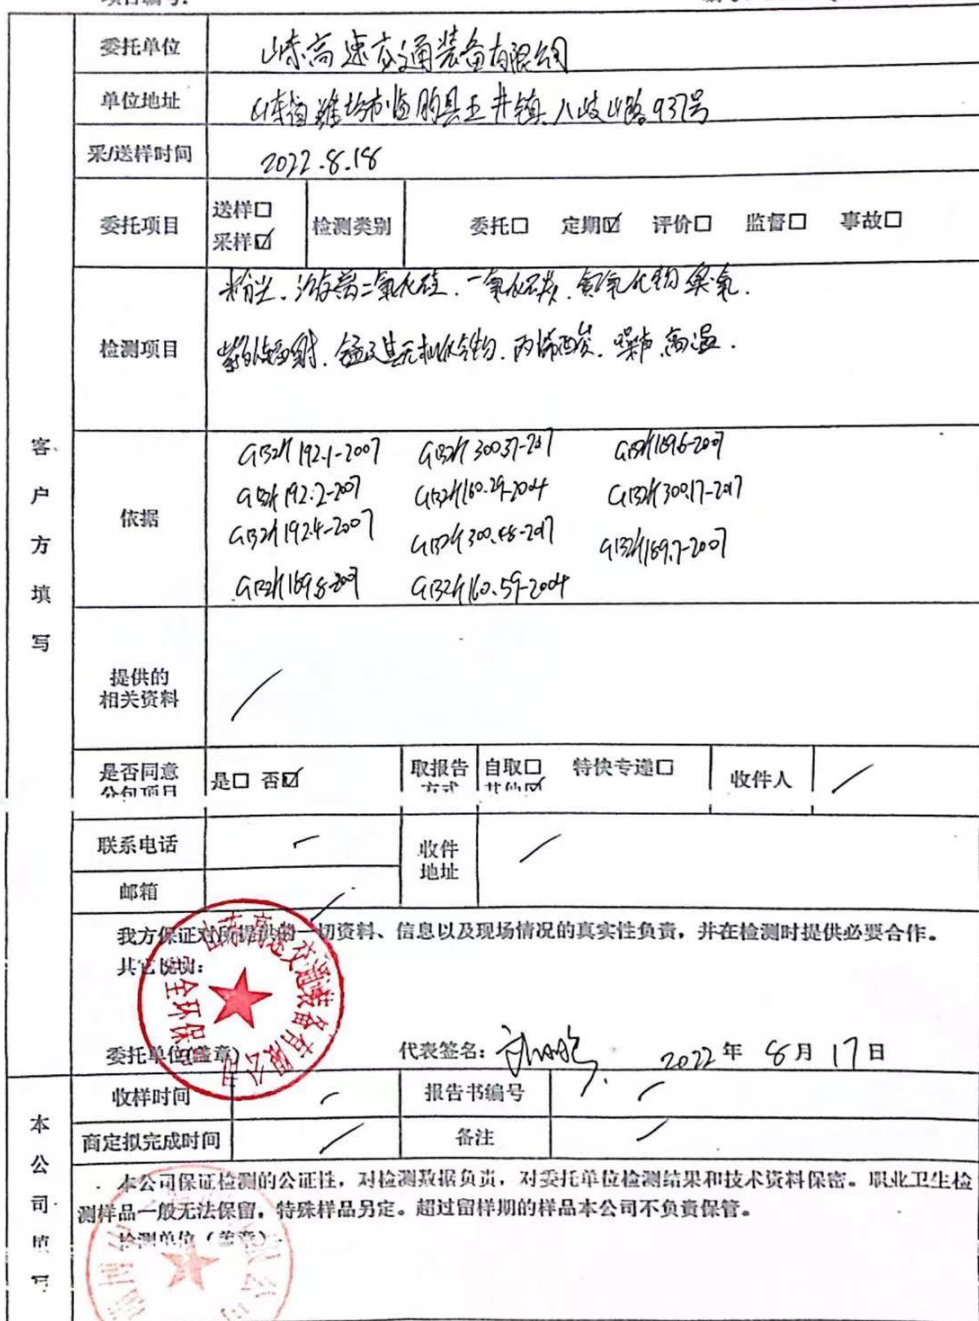 委托单位 山东高速交通装备有限公司
单位地址 山东省潍坊市临朐县五井镇八岐山路937号
采/送样时间 2022.8.18
委托项目 送样□ 采样☑ 检测类别 委托□ 定期☑ 评价□ 监督□ 事故□
检测项目 粉尘、游离二氧化硅、一氧化碳、氮氧化物 臭氧、
紫外辐射、锰及其无机化合物、丙烯酸、噪声、高温、
客户方填写
依据
GBZ/T192.1-2007 GBZ/T300.37-2017 GBZ/T189.6-2007
GBZ/T192.2-2007 GBZ/T160.29-2004 GBZ/T300.17-2017
GBZ/T192.4-2007 GBZ/T300.48-2017 GBZ/T189.7-2007
GBZ/T189.8-2007 GBZ/T160.59-2004
提供的
相关资料 /
是否同意
分包项目 是□ 否☑ 取报告
方式 自取□ 特快专递□
其他☑ 收件人 /
联系电话 / 收件
地址 /
邮箱 /
我方保证对所提供的一切资料、信息以及现场情况的真实性负责，并在检测时提供必要合作。
其它说明：
山东高速交通装备有限公司
安全环保部
委托单位(盖章) 代表签名： 2022年 8月 17日
本公司填写
收样时间 / 报告书编号 /
商定拟完成时间 / 备注 /
本公司保证检测的公证性，对检测数据负责，对委托单位检测结果和技术资料保密。职业卫生检
测样品一般无法保留，特殊样品另定。超过留样期的样品本公司不负责保管。
检测单位（盖章）：